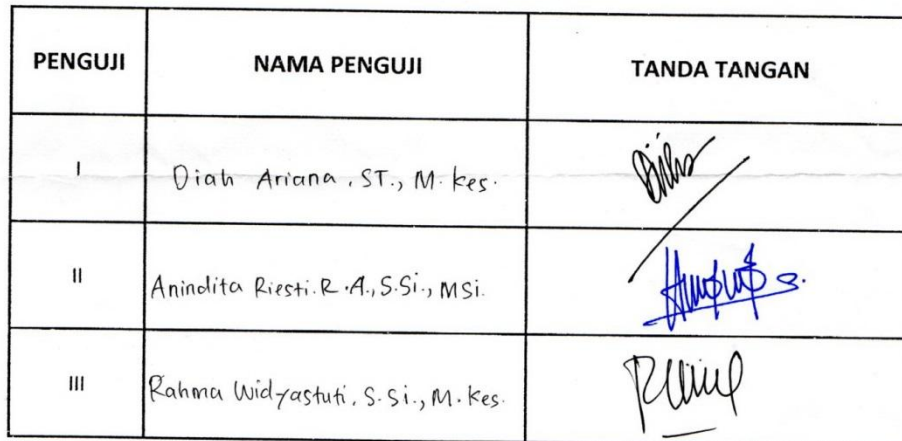 PENGUJI NAMA PENGUJI TANDA TANGAN
I Diah Ariana, ST., M. Kes.
II Anindita Riesti. R. A., S.Si., MSi.
III Rahma Widyastuti, S.Si., M. Kes.